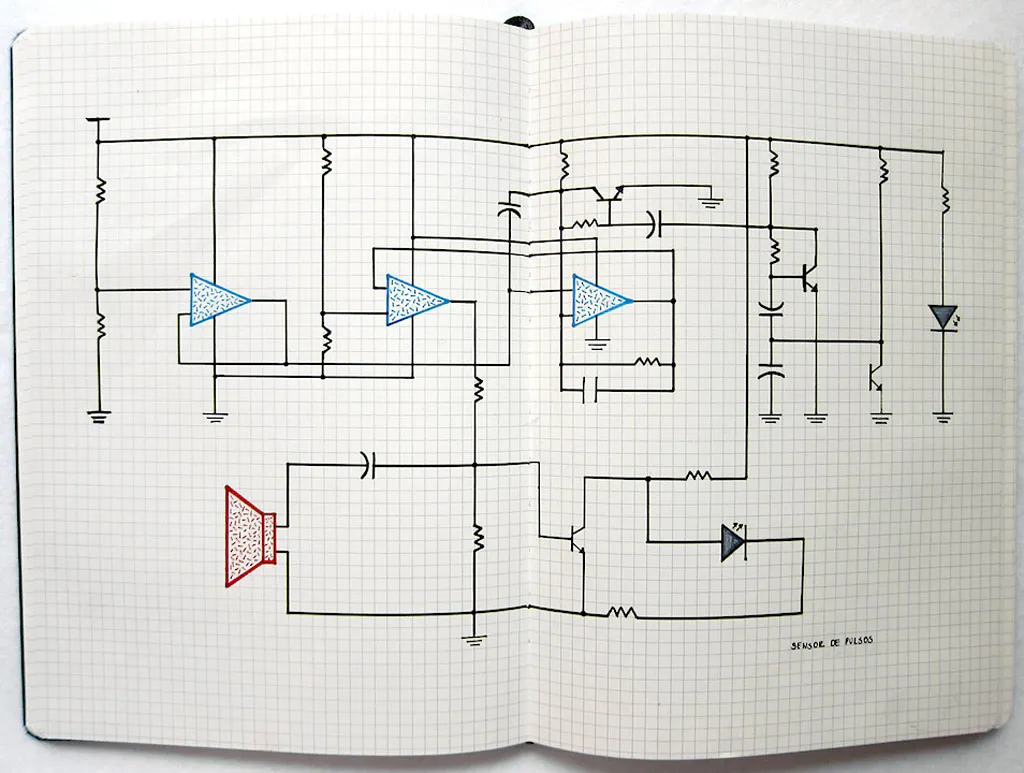 SENSOR DE PULSOS